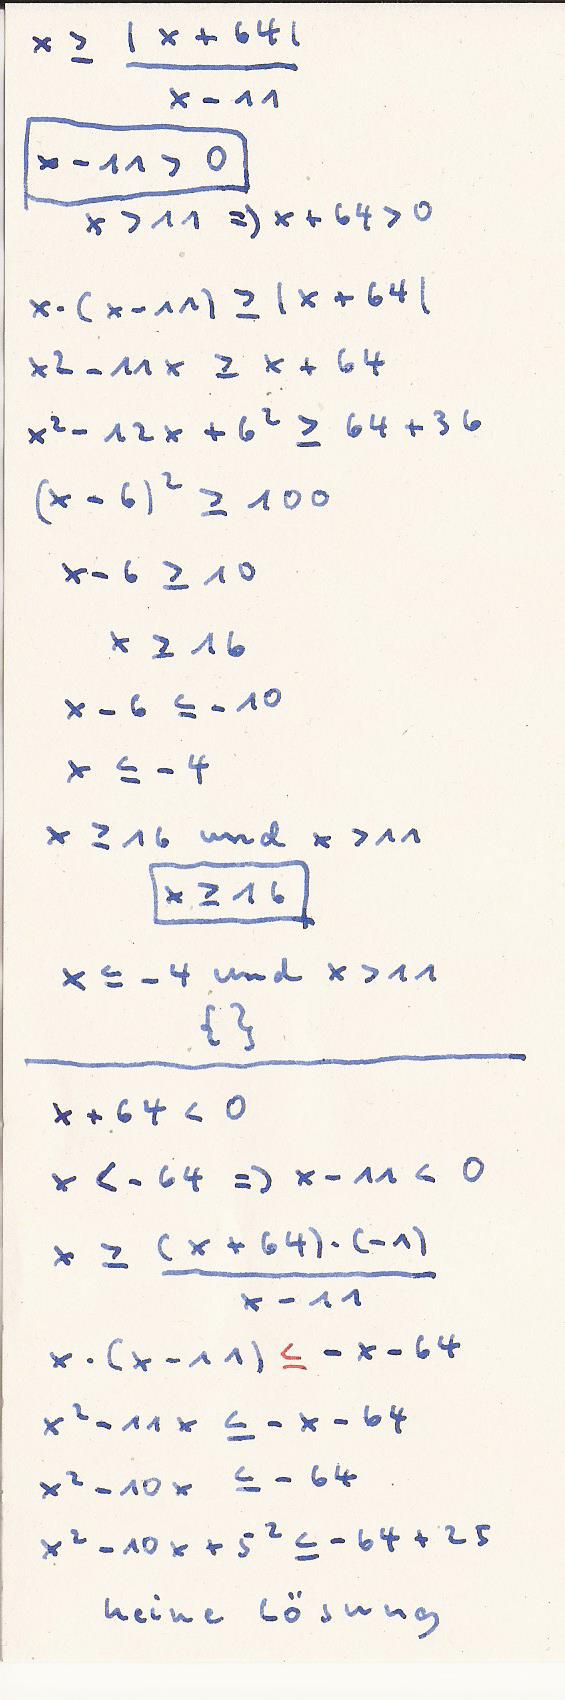 x ≥ |x + 64|
x - 11
x - 11 > 0
x > 11 ⇒ x + 64 > 0
x · (x - 11) ≥ |x + 64|
x² - 11x ≥ x + 64
x² - 12x + 6² ≥ 64 + 36
(x - 6)² ≥ 100
x - 6 ≥ 10
x ≥ 16
x - 6 ≤ -10
x ≤ -4
x ≥ 16 und x > 11
x ≥ 16
x ≤ -4 und x > 11
{ }
x + 64 < 0
x < -64 ⇒ x - 11 < 0
x ≥ (x + 64) · (-1)
x - 11
x · (x - 11) ≤ -x - 64
x² - 11x ≤ -x - 64
x² - 10x ≤ -64
x² - 10x + 5² ≤ -64 + 25
keine Lösung